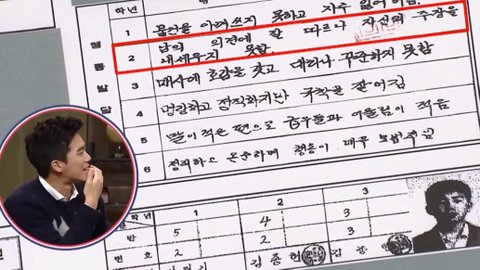 학년
1 물건을 아껴쓰지 못하고 자주 잃어버림.
행 2 남의 의견에 잘 따르나 자신의 주장을
내세우지 못함.
동 3 매사에 호감을 갖고 대하나 꾸준하지 못함
발 4 명랑하고 정직하지만 규칙을 잘 어김
달 5 말이 적은 편으로 급우들과 어울림이 적음
6 정직하고 온순하며 행동이 매우 모범적임
학년 1 2 3
반 5 4 3
번 2 2 3